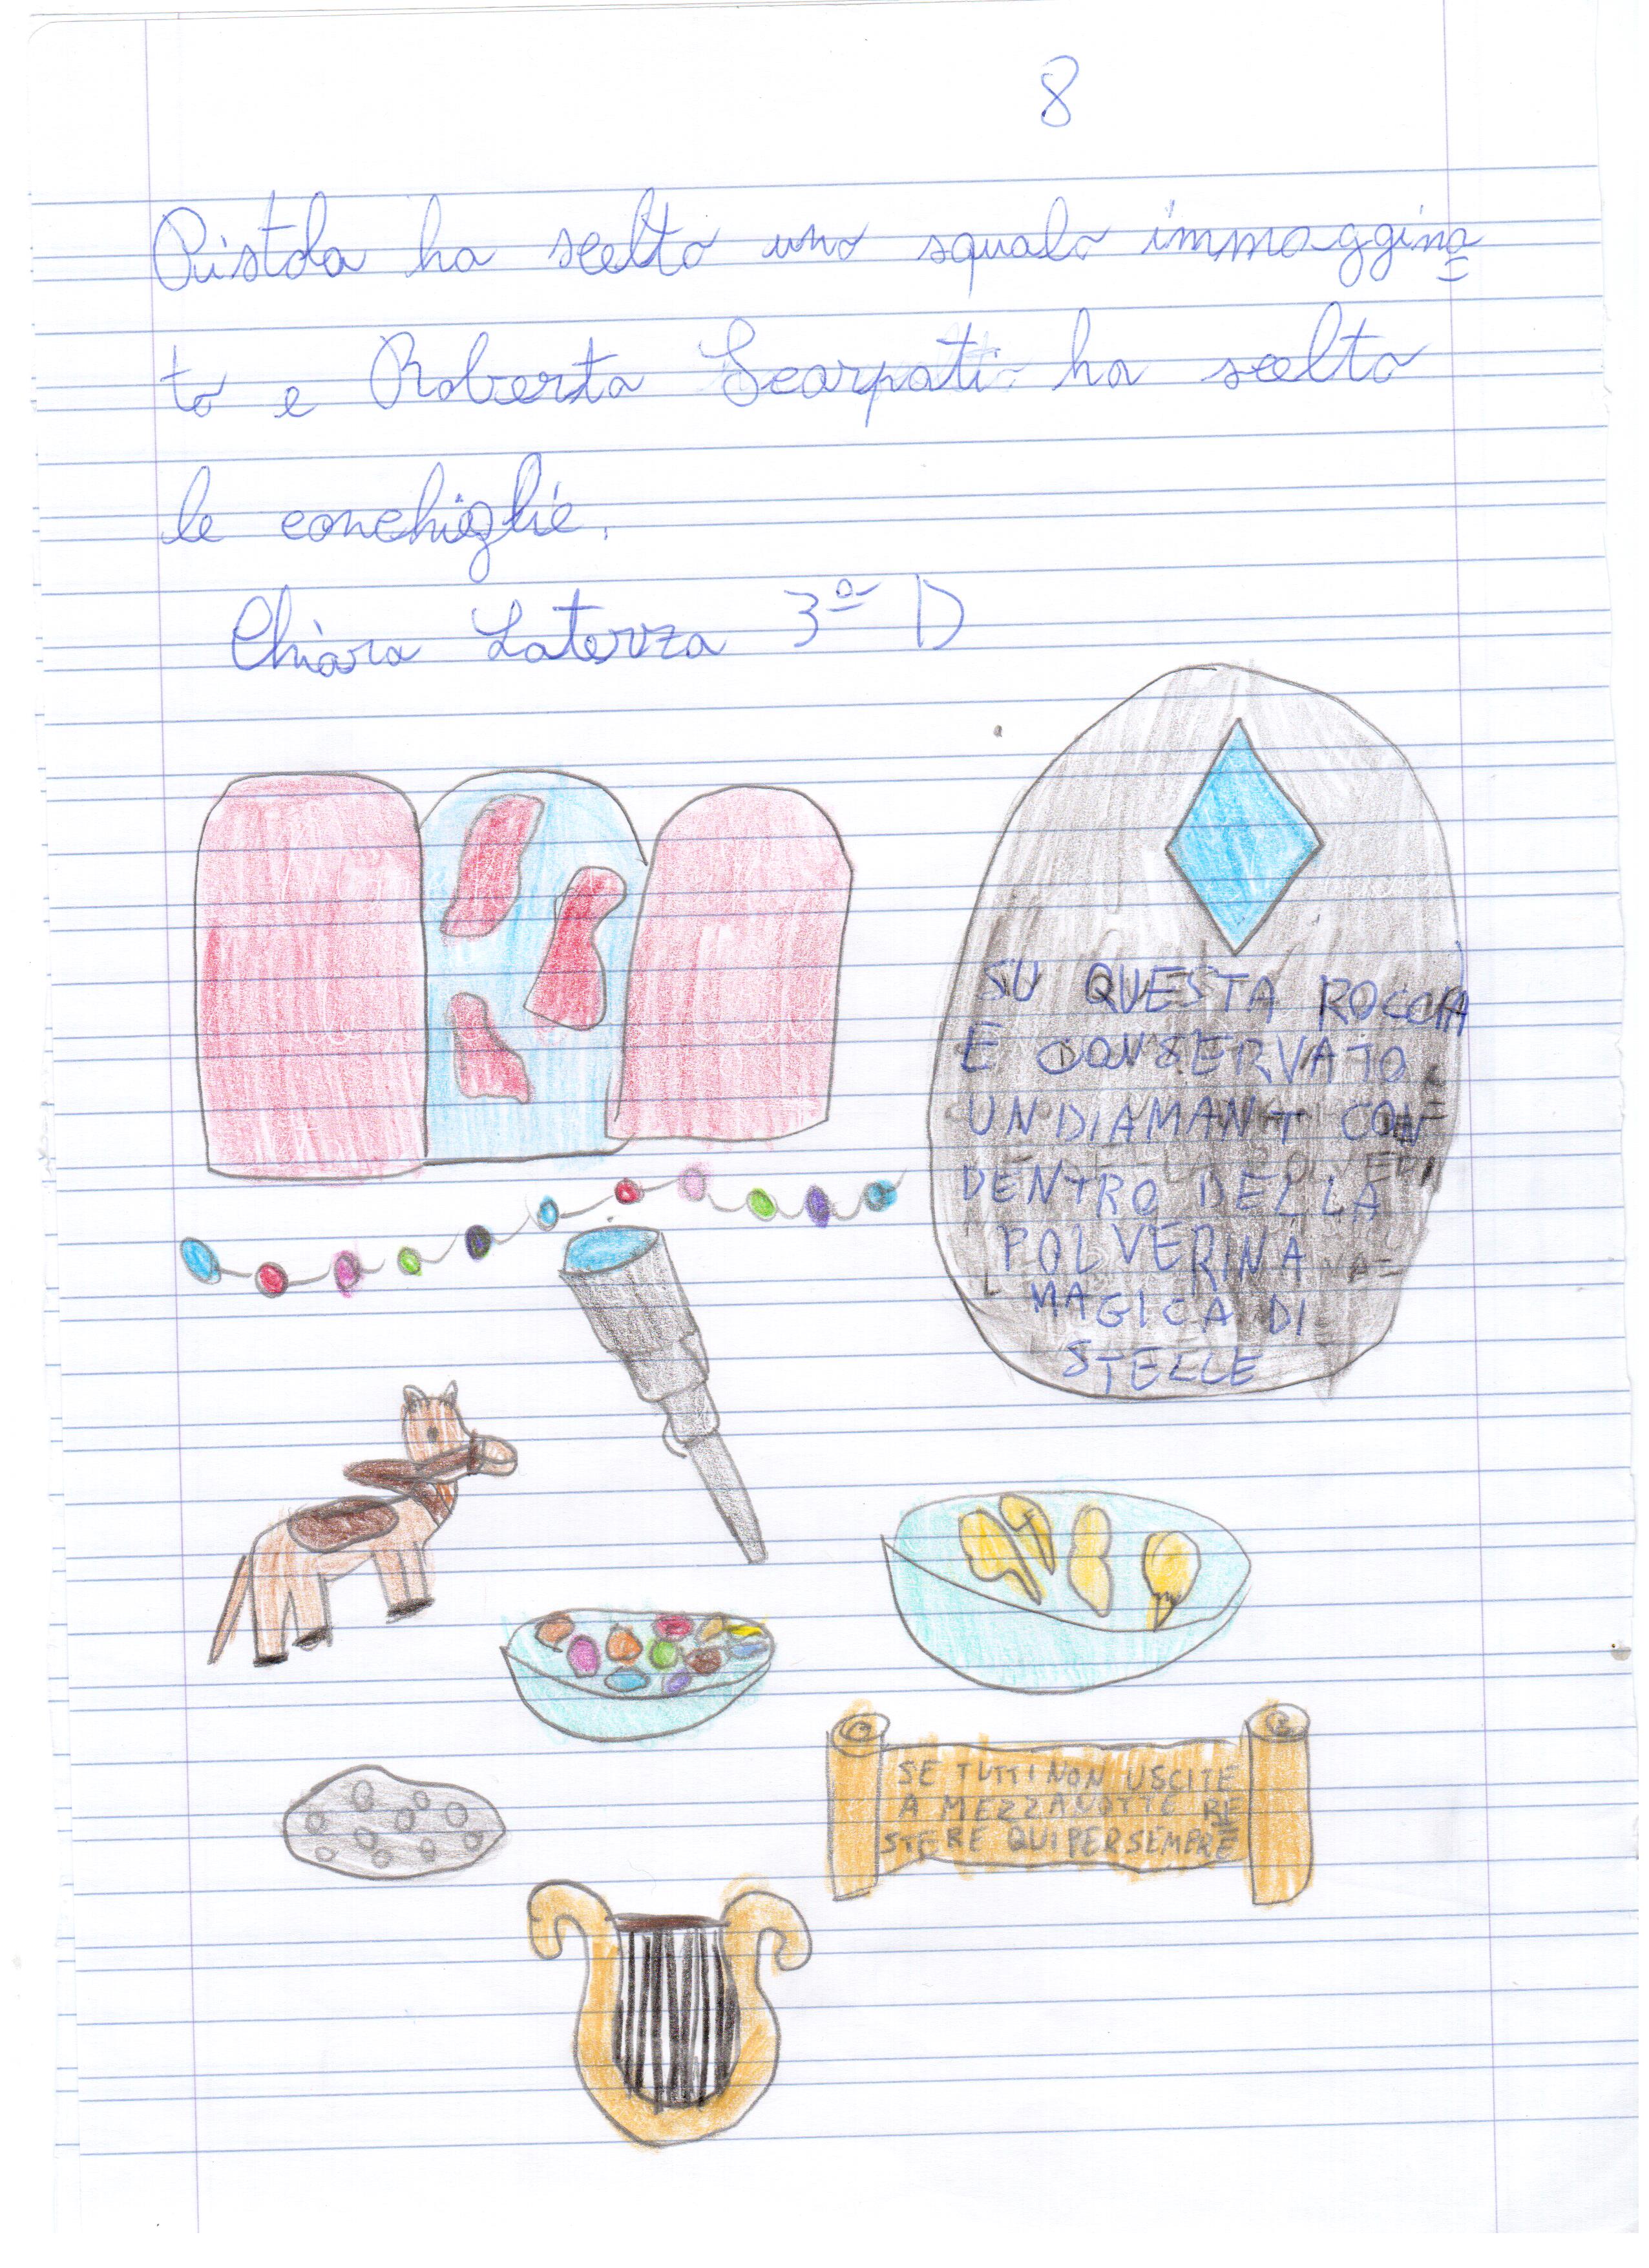 8
Pistola ha scelto uno squalo immaggina=
to e Roberta Scarpati ha scelto
le conchiglie.
Chiara Laterza 3ª D
SU QUESTA ROCCIA
E CONSERVATO
UN DIAMANT CON
DENTRO DELLA
POLVERINA
MAGICA DI
STELLE
SE TUTTI NON USCITE
A MEZZANOTTE RE=
STERE QUI PER SEMPRE